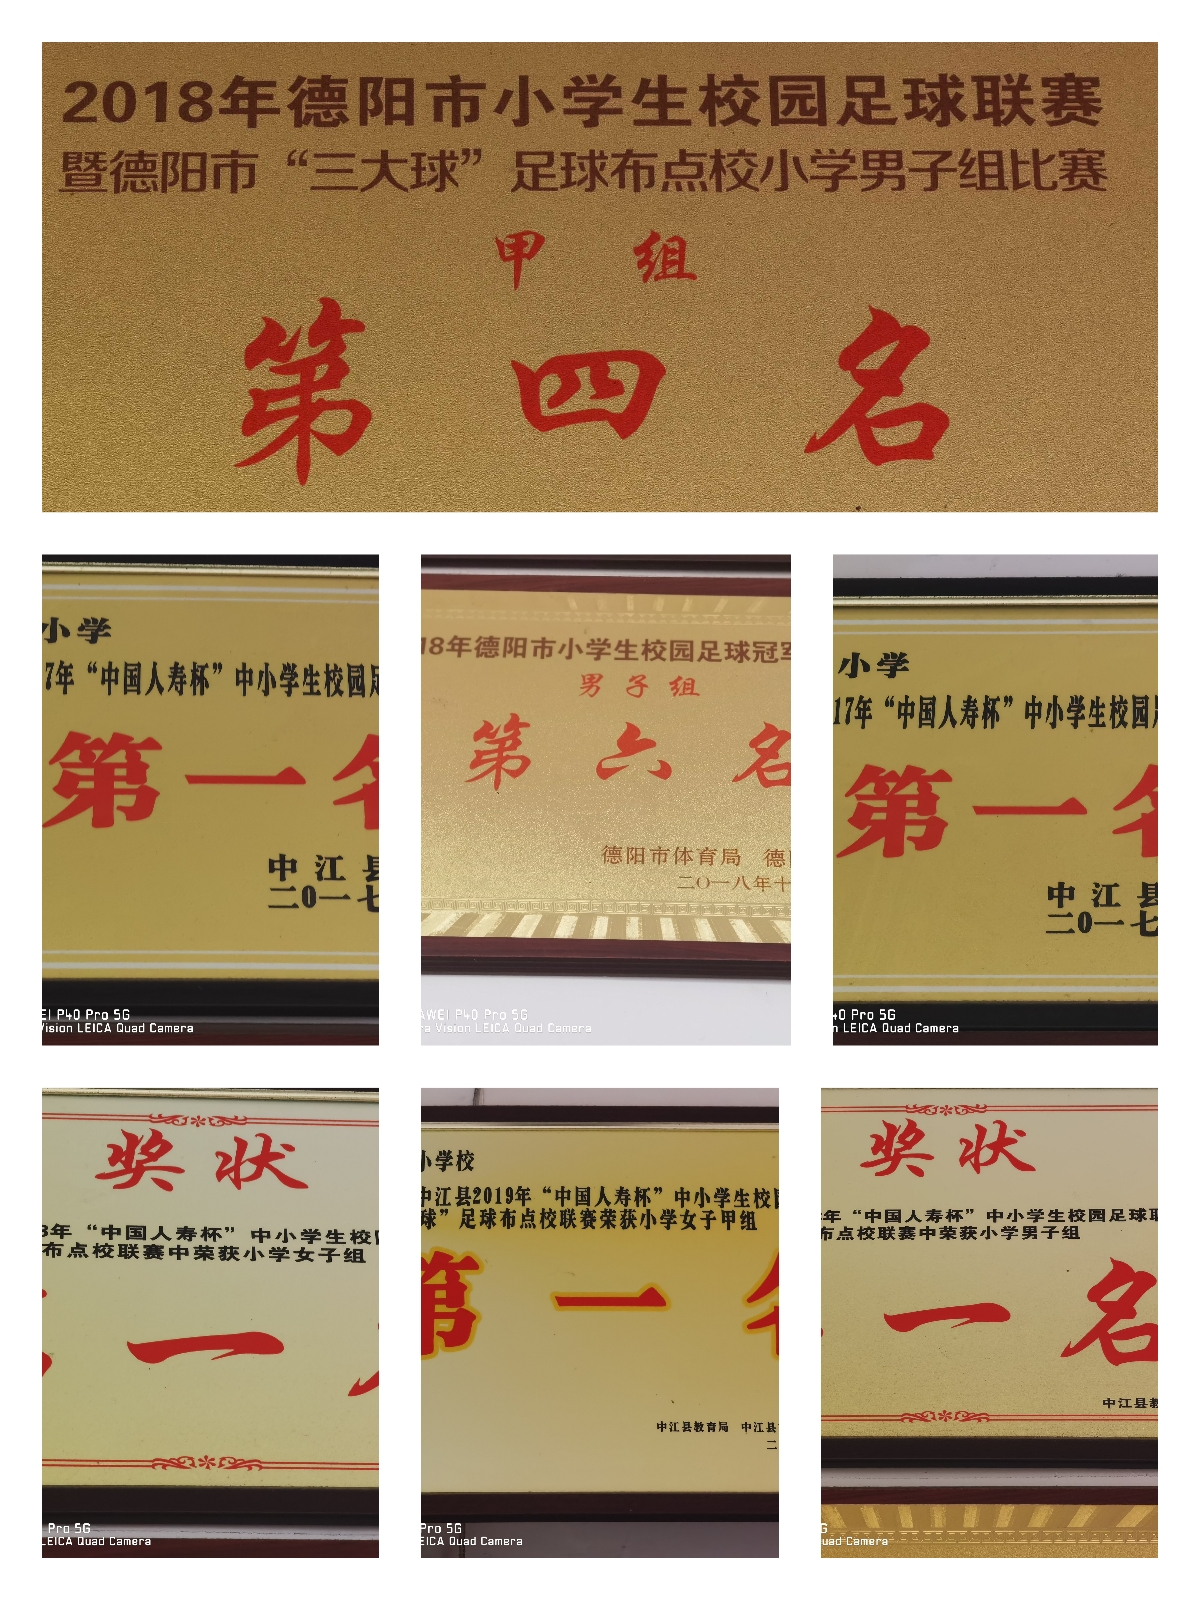 2018年德阳市小学生校园足球联赛
暨德阳市“三大球”足球布点校小学男子组比赛
甲 组
第 四 名
小学
7年“中国人寿杯”中小学生校园足
第一名
中江县
二0一七
EI P40 Pro 5G
Vision LEICA Quad Camera
18年德阳市小学生校园足球冠军
男子组
第六名
德阳市体育局 德
二〇一八年十
AWEI P40 Pro 5G
ra Vision LEICA Quad Camera
小学
17年“中国人寿杯”中小学生校园
第一名
中江县
二0一七
40 Pro 5G
n LEICA Quad Camera
奖状
8年“中国人寿杯”中小学生校
布点校联赛中荣获小学女子组
一
Pro 5G
LEICA Quad Camera
小学校
中江县2019年“中国人寿杯”中小学生校园
球”足球布点校联赛荣获小学女子甲组
第一名
中江县教育局 中江县
二
Pro 5G
EICA Quad Camera
奖状
年“中国人寿杯”中小学生校园足球联
布点校联赛中荣获小学男子组
一名
中江县教
G
uad Camera